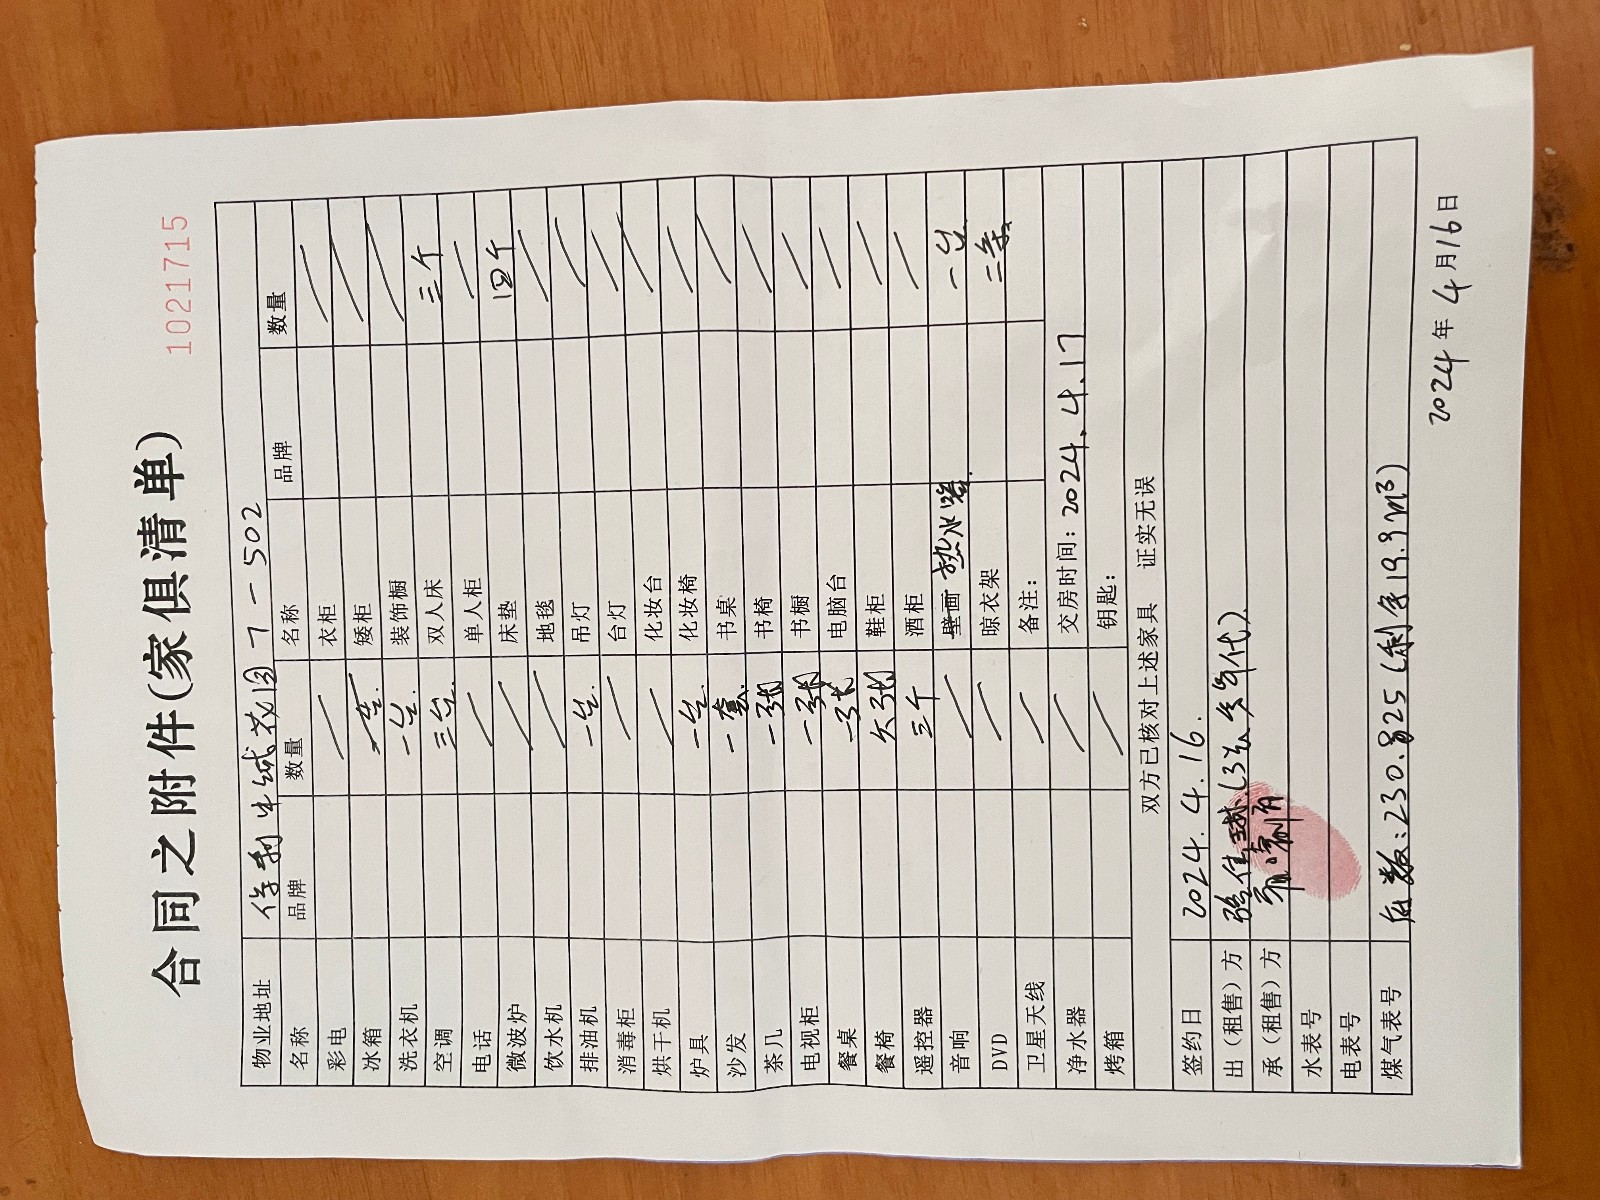 1021715
合同之附件(家俱清单)
物业地址 保利半城花园-7-502
名称 品牌 数量 名称 品牌 数量
彩电 / 衣柜 /
冰箱 矮柜 /
洗衣机 一台. 装饰橱 /
空调 三台. 双人床 三个
电话 / 单人柜 /
微波炉 / 床垫 四个
饮水机 / 地毯 /
排油机 一台. 吊灯 /
消毒柜 / 台灯 /
烘干机 / 化妆台 /
炉具 一台. 化妆椅 /
沙发 一套. 书桌 /
茶几 一张 书椅 /
电视柜 一张 书橱 /
餐桌 一张 电脑台 /
餐椅 六张 鞋柜 /
遥控器 三个 酒柜 /
音响 / 壁画 热水器. 一台
DVD / 晾衣架 二条
卫星天线 / 备注:
净水器 / 交房时间: 2024.4.17
烤箱 / 钥匙:
双方已核对上述家具 证实无误
签约日 2024.4.16.
出（租售）方 张佳
承（租售）方
水表号
电表号
煤气表号 底数:230.825(剩余19.9m³)
2024年4月16日